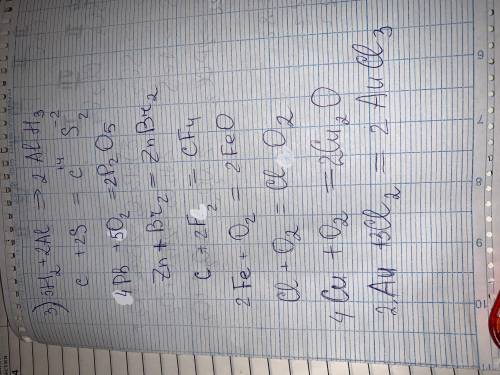 3) 3H₂ + 2Al => 2 AlH₃
C + 2S = C⁺⁴ S₂⁻²
4Pb + 5O₂ = 2P₂O₅
Zn + Br₂ = ZnBr₂
C + 2F₂ = CF₄
2Fe + O₂ = 2FeO
Cl + O₂ = ClO₂
4Cu + O₂ = 2Cu₂O
2Au + 3Cl₂ = 2AuCl₃
6
7
8
9
10